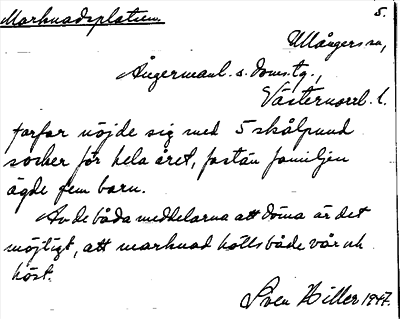 Marknadsplatsen. 5.
Ullångers sn,
Ångermanl. s. doms.tg.,
Västernorrl. l.
farfar nöjde sig med 5 skålpund
socker för hela året, fastän familjen
ägde fem barn.
Av de båda meddelarna att döma är det
möjligt, att marknad hölls både vår och
höst.
Sven Hiller 1947.